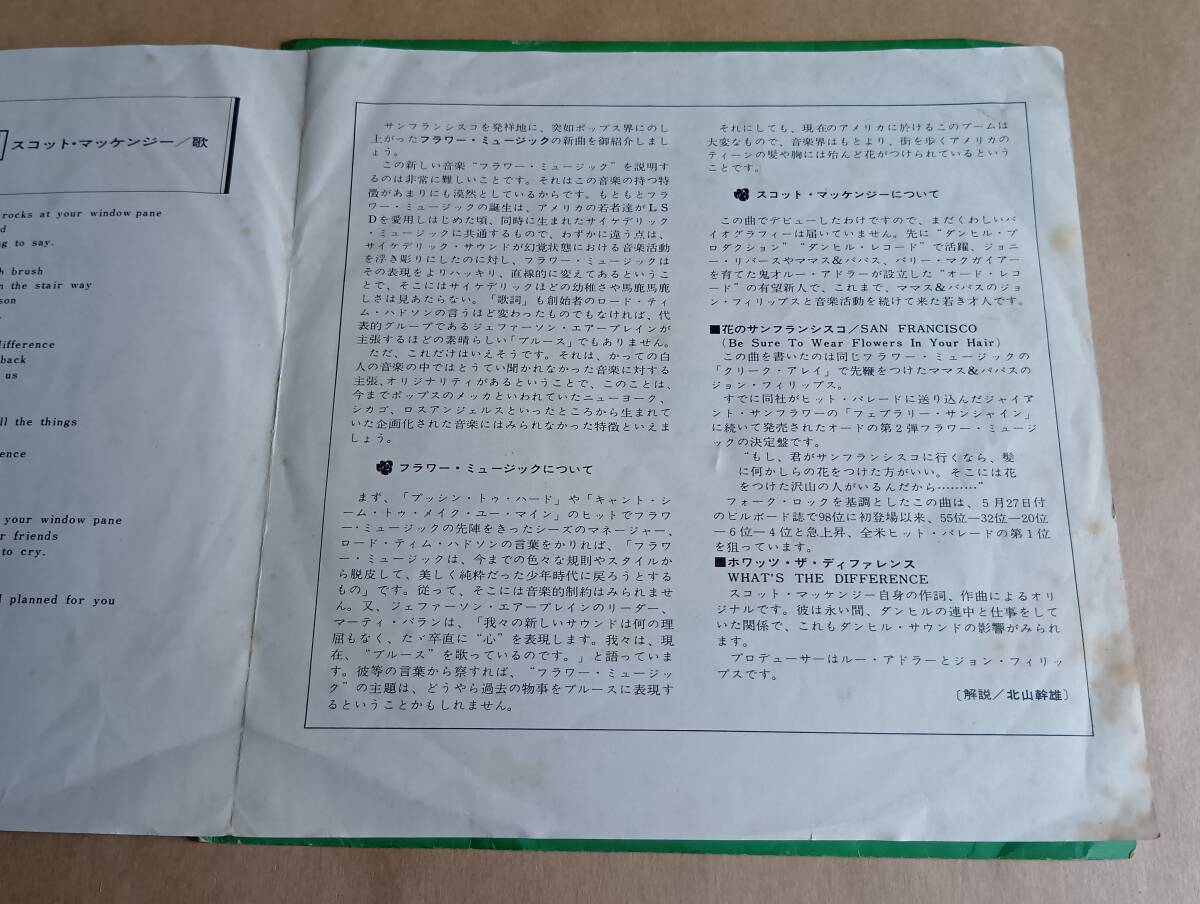 スコット・マッケンジー／歌
rocks at your window pane
ng to say.
h brush
n the stair way
son
difference
back
us
ll the things
ence
your window pane
r friends
to cry.
l planned for you
サンフランシスコを発祥地に、突如ポップス界にのし
上がったフラワー・ミュージックの新曲を御紹介しまし
ょう。
この新しい音楽“フラワー・ミュージック”を説明す
るのは非常に難しいことです。それはこの音楽の持つ特
徴があまりにも漠然としているからです。もともとフラ
ワー・ミュージックの誕生は、アメリカの若者達がＬＳ
Ｄを愛用しはじめた頃、同時に生まれたサイケデリック
・ミュージックに共通するもので、わずかに違う点は、
サイケデリック・サウンドが幻覚状態における音楽活動
を浮き彫りにしたのに対し、フラワー・ミュージックは
その表現をよりハッキリ、直線的に変えてあるというこ
とで、そこにはサイケデリックほどの幼稚さや馬鹿馬鹿
しさは見あたらない。「歌詞」も創始者のロード・ティ
ム・ハドソンの言うほど変わったものでもなければ、代
表的グループであるジェファーソン・エアープレインが
主張するほどの素晴らしい「ブルース」でもありません。
ただ、これだけはいえそうです。それは、かっての白
人の音楽の中ではとうてい聞かれなかった音楽に対する
主張、オリジナリティがあるということで、このことは、
今までポップスのメッカといわれていたニューヨーク、
シカゴ、ロスアンジェルスといったところから生まれて
いた企画化された音楽にはみられなかった特徴といえま
しょう。
フラワー・ミュージックについて
まず、「プッシン・トゥ・ハード」や「キャント・シ
ーム・トゥ・メイク・ユー・マイン」のヒットでフラワ
ー・ミュージックの先陣をきったシーズのマネージャー、
ロード・ティム・ハドソンの言葉をかりれば、「フラワ
ー・ミュージックは、今までの色々な規則やスタイルか
ら脱皮して、美しく純粋だった少年時代に戻ろうとする
もの」です。従って、そこには音楽的制約はみられませ
ん。又、ジェファーソン・エアープレインのリーダー、
マーティ・バランは、「我々の新しいサウンドは何の理
屈もなく、たゞ卒直に“心”を表現します。我々は、現
在、“ブルース”を歌っているのです。」と語っていま
す。彼等の言葉から察すれば、“フラワー・ミュージッ
ク”の主題は、どうやら過去の物事をブルースに表現す
るということかもしれません。
それにしても、現在のアメリカに於けるこのブームは
大変なもので、音楽界はもとより、街を歩くアメリカの
ティーンの髪や胸には殆んど花がつけられているという
ことです。
スコット・マッケンジーについて
この曲でデビューしたわけですので、まだくわしいバ
イオグラフィーは届いていません。先に“ダンヒル・プ
ロダクション”“ダンヒル・レコード”で活躍、ジョニ
ー・リバースやママス&パパス、バリー・マクガイアー
を育てた鬼才ルー・アドラーが設立した“オード・レコ
ード”の有望新人で、これまで、ママス&パパスのジョ
ン・フィリップスと音楽活動を続けて来た若き才人です。
■花のサンフランシスコ／SAN FRANCISCO
(Be Sure To Wear Flowers In Your Hair)
この曲を書いたのは同じフラワー・ミュージックの
「クリーク・アレイ」で先鞭をつけたママス&パパスの
ジョン・フィリップス。
すでに同社がヒット・パレードに送り込んだジャイア
ント・サンフラワーの「フェブラリー・サンシャイン」
に続いて発売されたオードの第２弾フラワー・ミュージ
ックの決定盤です。
“もし、君がサンフランシスコに行くなら、髪
に何かしらの花をつけた方がいい。そこには花
をつけた沢山の人がいるんだから………”
フォーク・ロックを基調としたこの曲は、５月27日付
のビルボード誌で98位に初登場以来、55位―32位―20位
―６位―４位と急上昇、全米ヒット・パレードの第１位
を狙っています。
■ホワッツ・ザ・ディファレンス
WHAT'S THE DIFFERENCE
スコット・マッケンジー自身の作詞、作曲によるオリ
ジナルです。彼は永い間、ダンヒルの連中と仕事をして
いた関係で、これもダンヒル・サウンドの影響がみられ
ます。
プロデューサーはルー・アドラーとジョン・フィリッ
プスです。
〔解説／北山幹雄〕